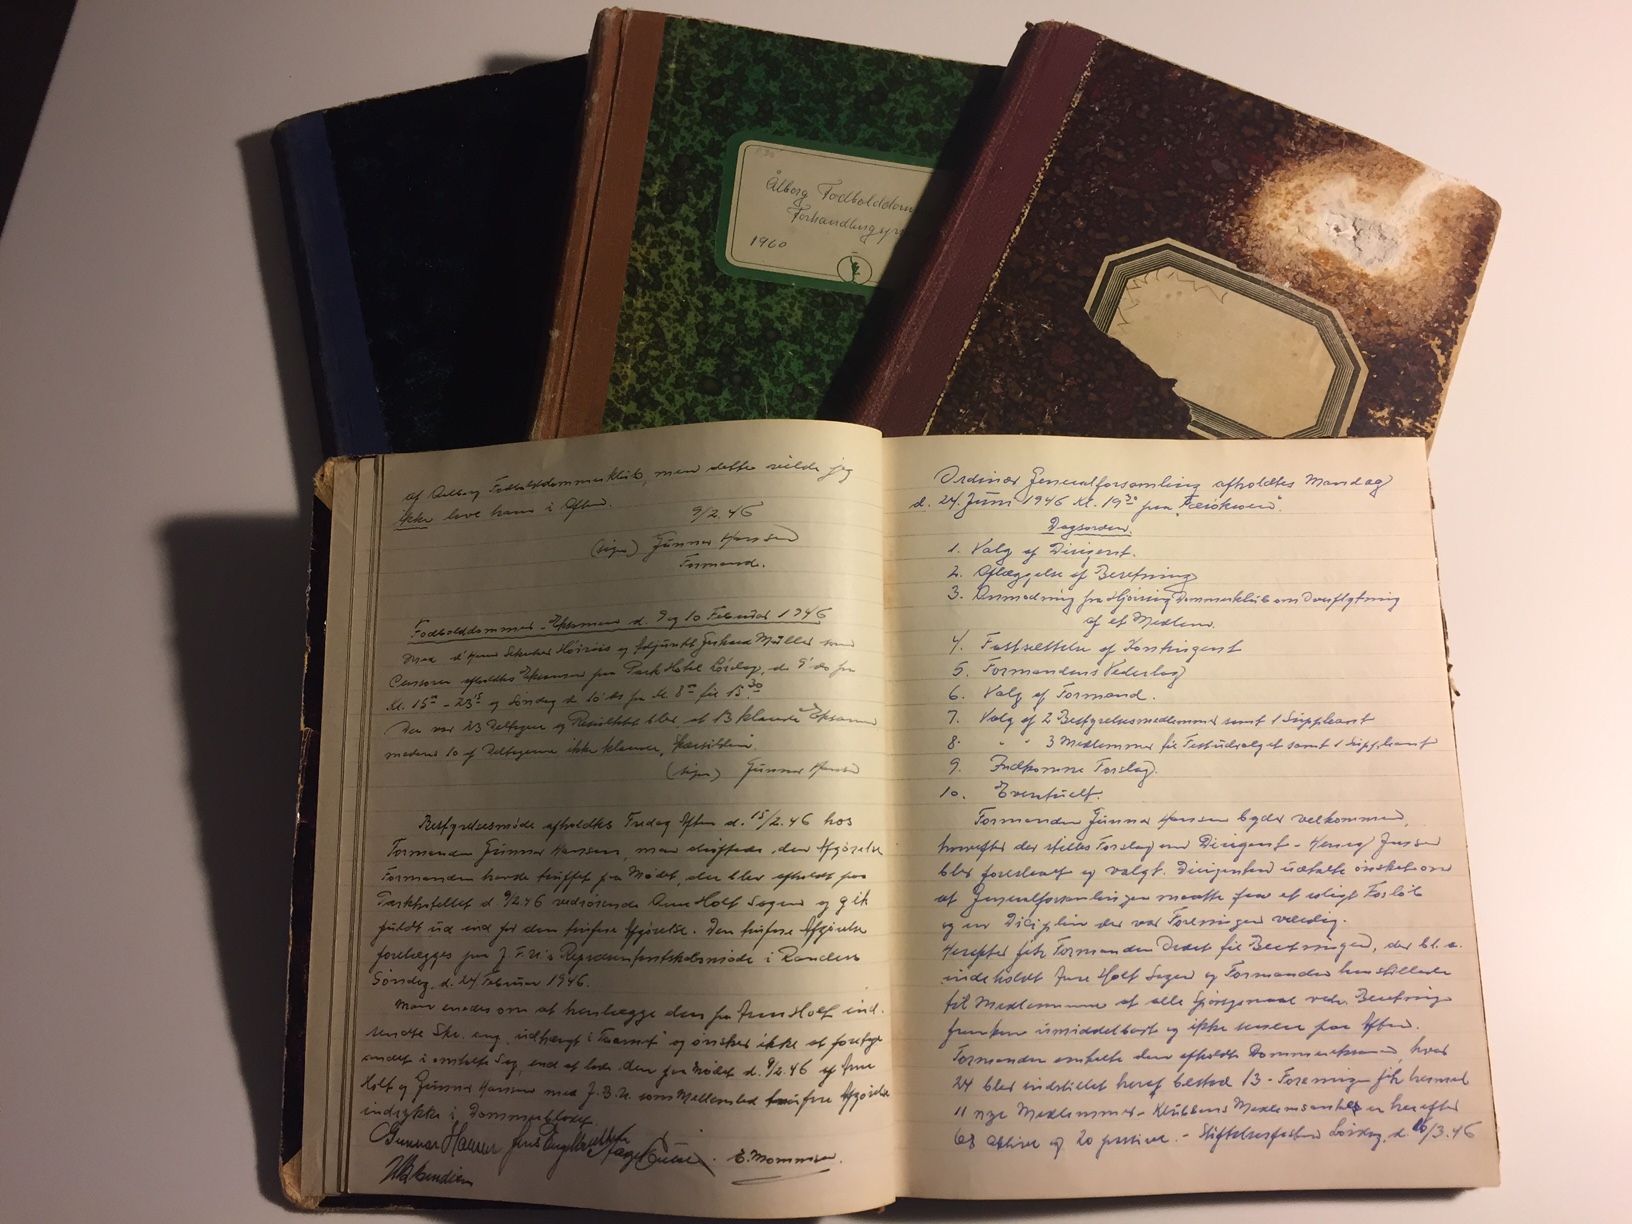 Ålborg Fodbolddom
Forhandlingspr
1960
af Aalborg Fodbolddommerklub, men dette vilde jeg
ikke love ham i Aften.
9/2.46
(sign) Gunnar Hansen
Formand.
Fodbolddommer-Eksamen d. 9 og 10 Februar 1946
Censorer afholdtes Eksamen paa Park Hotel Lørdag, d. 9' ds fra
Kl. 15 - 23 15 og Søndag d. 10' ds fra Kl. 8 til 15 30
Der var 23 Deltagere og Resultatet blev at 13 klarede Eksamen
medens 10 af Deltagerne ikke klarede
(sign) Gunnar Hansen
Bestyrelsesmøde afholdtes Fredag Aften d. 15/2.46 hos
Formanden Gunnar Hansen, man drøftede den Afgørelse
Formanden havde truffet paa Mødet, der blev afholdt paa
Parkhotellet d 9/2 46 vedrørende Arne Holst Sagen og gik
fuldt ud ind for den trufne Afgørelse. Den trufne Afgørelse
forelægges paa J.B.U's Repræsentantskabsmøde i Randers
Søndag, d. 24 Februar 1946.
Man enedes om at henlægge den fra Arne Holst ind-
sendte Skr. ang. udhængt i og ønsker ikke at foretage
andet i omtalte Sag, end at lade den paa Mødet d. 9/2.46 af Arne
Holst og Gunnar Hansen med J.B.U. som Mellemled trufne Afgørelse
indrykke i Dommerbladet.
Gunnar Hansen E. Mommsen.
Ordinær Generalforsamling afholdtes Mandag
d. 24. Juni 1946 Kl. 19 30 paa
Dagsorden.
1. Valg af Dirigent.
2. Aflæggelse af Beretning
3. Anmodning fra Hjørring Dommerklub om Overflytning
af et Medlem.
4. Fastsættelse af Kontingent
5. Formandens Vederlag
6. Valg af Formand.
7. Valg af 2 Bestyrelsesmedlemmer samt 1 Suppleant
8. " " 3 Medlemmer til Festudvalget samt 1 Suppleant
9. Indkomne Forslag.
10. Eventuelt.
Formanden Gunnar Hansen byder velkommen,
hvorefter der stilles Forslag om Dirigent - Henry Jensen
blev foreslaaet og valgt. Dirigenten udtalte ønsket om
at Generalforsamlingen maatte faa et roligt Forløb
og en Diciplin der var Foreningen værdig.
Herefter fik Formanden Ordet til Beretningen, der bl.a.
indeholdt Arne Holst Sagen og Formanden henstillede
til Medlemmerne at alle Spørgsmaal vedr. Beretningen
fremkom umiddelbart og ikke senere paa Aften.
Formanden omtalte den afholdte Dommereksamen, hvor
24 blev indstillet heraf bestod 13 - Foreningen fik hermed
11 nye Medlemmer - Klubbens Medlemsantal er herefter
68 aktive og 20 passive. - Stiftelsesfesten Lørdag, d /3.46